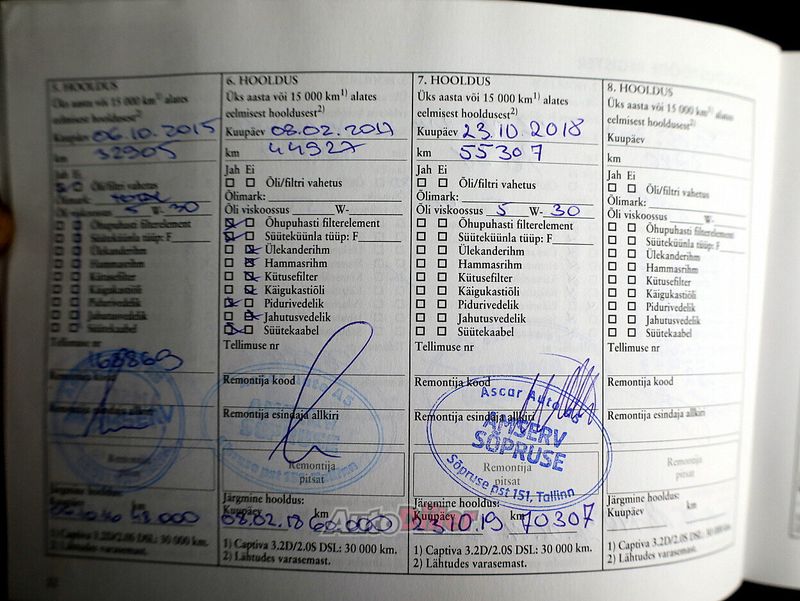 5. HOOLDUS
Üks aasta või 15 000 km1) alates
eelmisest hooldusest2)
Kuupäev 06.10.2015
km 32905
Jah Ei
Õli/filtri vahetus
Õlimark:
Õli viskoossus 5 W-30
Õhupuhasti filterelement
Süüteküünla tüüp: F
Ülekanderihm
Hammasrihm
Kütusefilter
Käigukastiõli
Pidurivedelik
Jahutusvedelik
Süütekaabel
Tellimuse nr
168869
Remontija kood
Remontija esindaja allkiri
Remontija
pitsat
Järgmine hooldus:
Kuupäev km
48.000
1) Captiva 3.2D/2.0S DSL: 30 000 km.
2) Lähtudes varasemast.
6. HOOLDUS
Üks aasta või 15 000 km1) alates
eelmisest hooldusest2)
Kuupäev 08.02.2017
km 44927
Jah Ei
Õli/filtri vahetus
Õlimark:
Õli viskoossus W-
Õhupuhasti filterelement
Süüteküünla tüüp: F
Ülekanderihm
Hammasrihm
Kütusefilter
Käigukastiõli
Pidurivedelik
Jahutusvedelik
Süütekaabel
Tellimuse nr
Remontija kood
Remontija esindaja allkiri
AMSERV
SÕPRUSE
Sõpruse pst 151, Tallinn
Remontija
pitsat
Järgmine hooldus:
Kuupäev km
08.02.18 60.000
1) Captiva 3.2D/2.0S DSL: 30 000 km.
2) Lähtudes varasemast.
7. HOOLDUS
Üks aasta või 15 000 km1) alates
eelmisest hooldusest2)
Kuupäev 23.10.2018
km 55307
Jah Ei
Õli/filtri vahetus
Õlimark:
Õli viskoossus 5 W-30
Õhupuhasti filterelement
Süüteküünla tüüp: F
Ülekanderihm
Hammasrihm
Kütusefilter
Käigukastiõli
Pidurivedelik
Jahutusvedelik
Süütekaabel
Tellimuse nr
Remontija kood
Ascar Auto AS
Remontija esindaja allkiri
AMSERV
SÕPRUSE
Sõpruse pst 151, Tallinn
Remontija
pitsat
Järgmine hooldus:
Kuupäev km
23.10.19 70307
1) Captiva 3.2D/2.0S DSL: 30 000 km.
2) Lähtudes varasemast.
8. HOOLDUS
Üks aasta või 15 000 km1) alates
eelmisest hooldusest2)
Kuupäev
km
Jah Ei
Õli/filtri vahetus
Õlimark:
Õli viskoossus W-
Õhupuhasti filterelement
Süüteküünla tüüp: F
Ülekanderihm
Hammasrihm
Kütusefilter
Käigukastiõli
Pidurivedelik
Jahutusvedelik
Süütekaabel
Tellimuse nr
Remontija kood
Remontija esindaja allkiri
Remontija
pitsat
Järgmine hooldus:
Kuupäev km
1) Captiva 3.2D/2.0S DSL: 30 000 km.
2) Lähtudes varasemast.